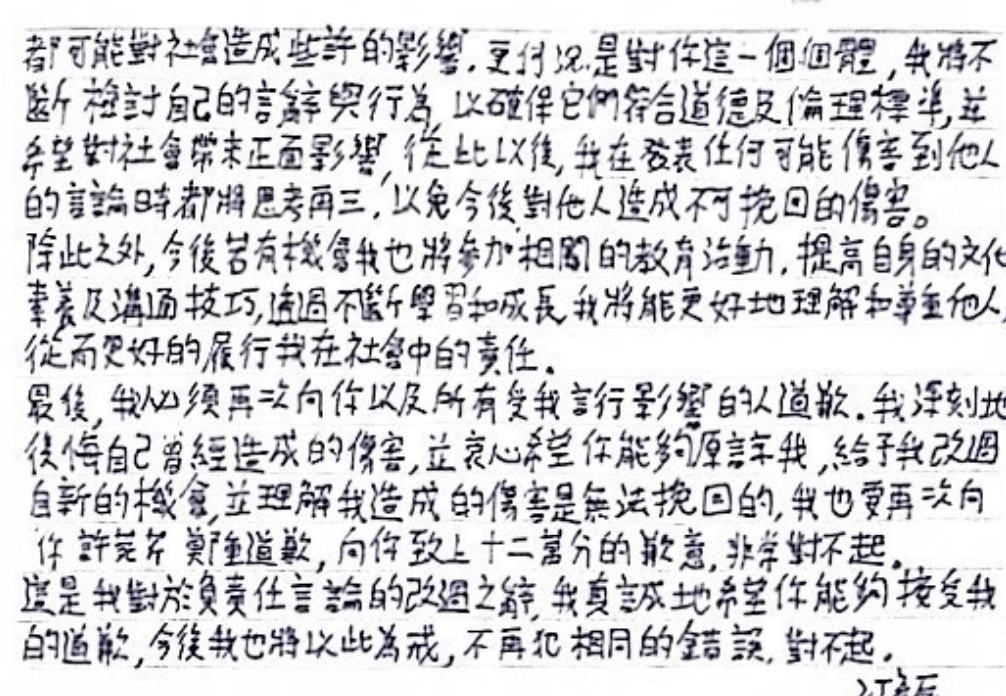 都可能對社會造成些許的影響.更何況是對你這一個個體,我將不
斷檢討自己的言辭與行為,以確保它們符合道德及倫理標準,並
希望對社會帶來正面影響,從此以後,我在發表任何可能傷害到他人
的言論時都將思考再三,以免今後對他人造成不可挽回的傷害。
除此之外,今後若有機會我也將參加相關的教育活動,提高自身的文化
素養及溝通技巧,透過不斷學習和成長,我將能更好地理解和尊重他人,
從而更好的履行我在社會中的責任.
最後,我必須再次向你以及所有受我言行影響的人道歉.我深刻地
後悔自己曾經造成的傷害,並衷心希望你能夠原諒我,給予我改過
自新的機會,並理解我造成的傷害是無法挽回的,我也要再次向
你許芷芹鄭重道歉,向你致上十二萬分的歉意,非常對不起.
這是我對於負責任言論的改過之辭,我真誠地希望你能夠接受我
的道歉,今後我也將以此為戒,不再犯相同的錯誤.對不起.